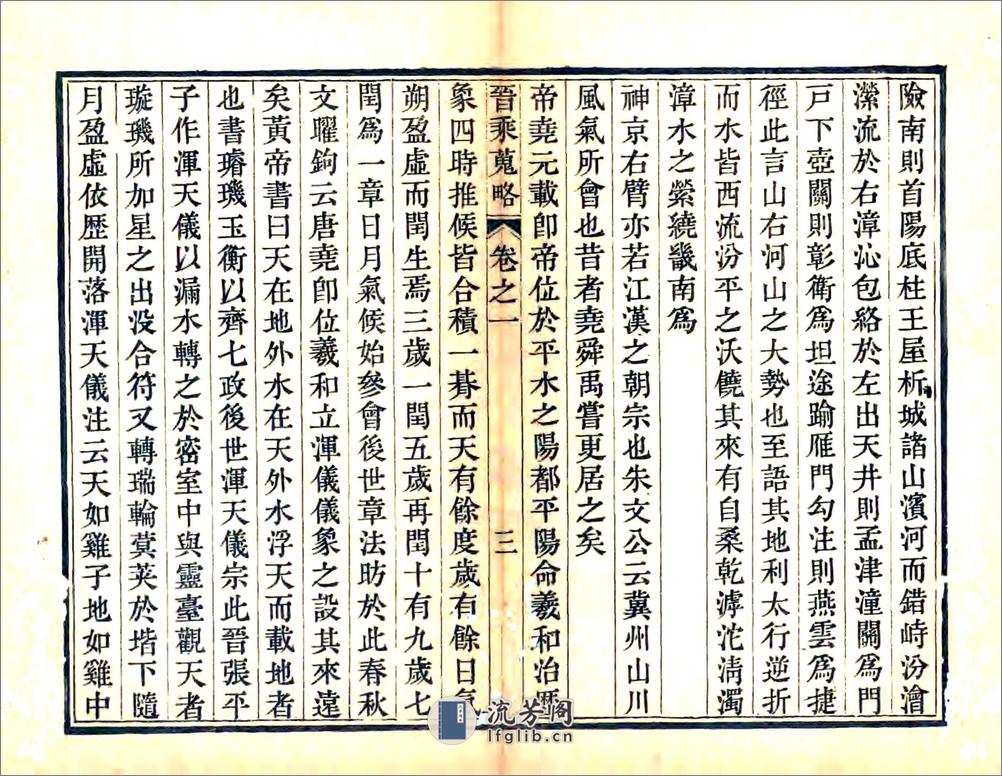 險南則首陽底柱王屋析城諸山濱河而錯峙汾澮
濴流於右漳沁包絡於左出天井則孟津潼關爲門
戸下壺關則彰衛爲坦途踰雁門勾注則燕雲爲捷
徑此言山右河山之大勢也至語其地利太行逆折
而水皆西流汾平之沃饒其來有自桑乾滹沱淸濁
漳水之縈繞畿南爲
神京右臂亦若江漢之朝宗也朱文公云冀州山川
風氣所會也昔者堯舜禹嘗更居之矣
帝堯元載卽帝位於平水之陽都平陽命羲和治厯
晉乘蒐略 卷之一 三
象四時推候皆合積一朞而天有餘度歲有餘日氣
朔盈虛而閏生焉三歲一閏五歲再閏十有九歲七
閏爲一章日月氣候始參會後世章法昉於此春秋
文曜鉤云唐堯卽位羲和立渾儀儀象之設其來遠
矣黃帝書曰天在地外水在天外水浮天而載地者
也書璿璣玉衡以齊七政後世渾天儀宗此晉張平
子作渾天儀以漏水轉之於密室中與靈臺觀天者
璇璣所加星之出没合符又轉瑞輪蓂莢於堦下隨
月盈虛依歷開落渾天儀注云天如雞子地如雞中
流芳阁
lfglib.cn